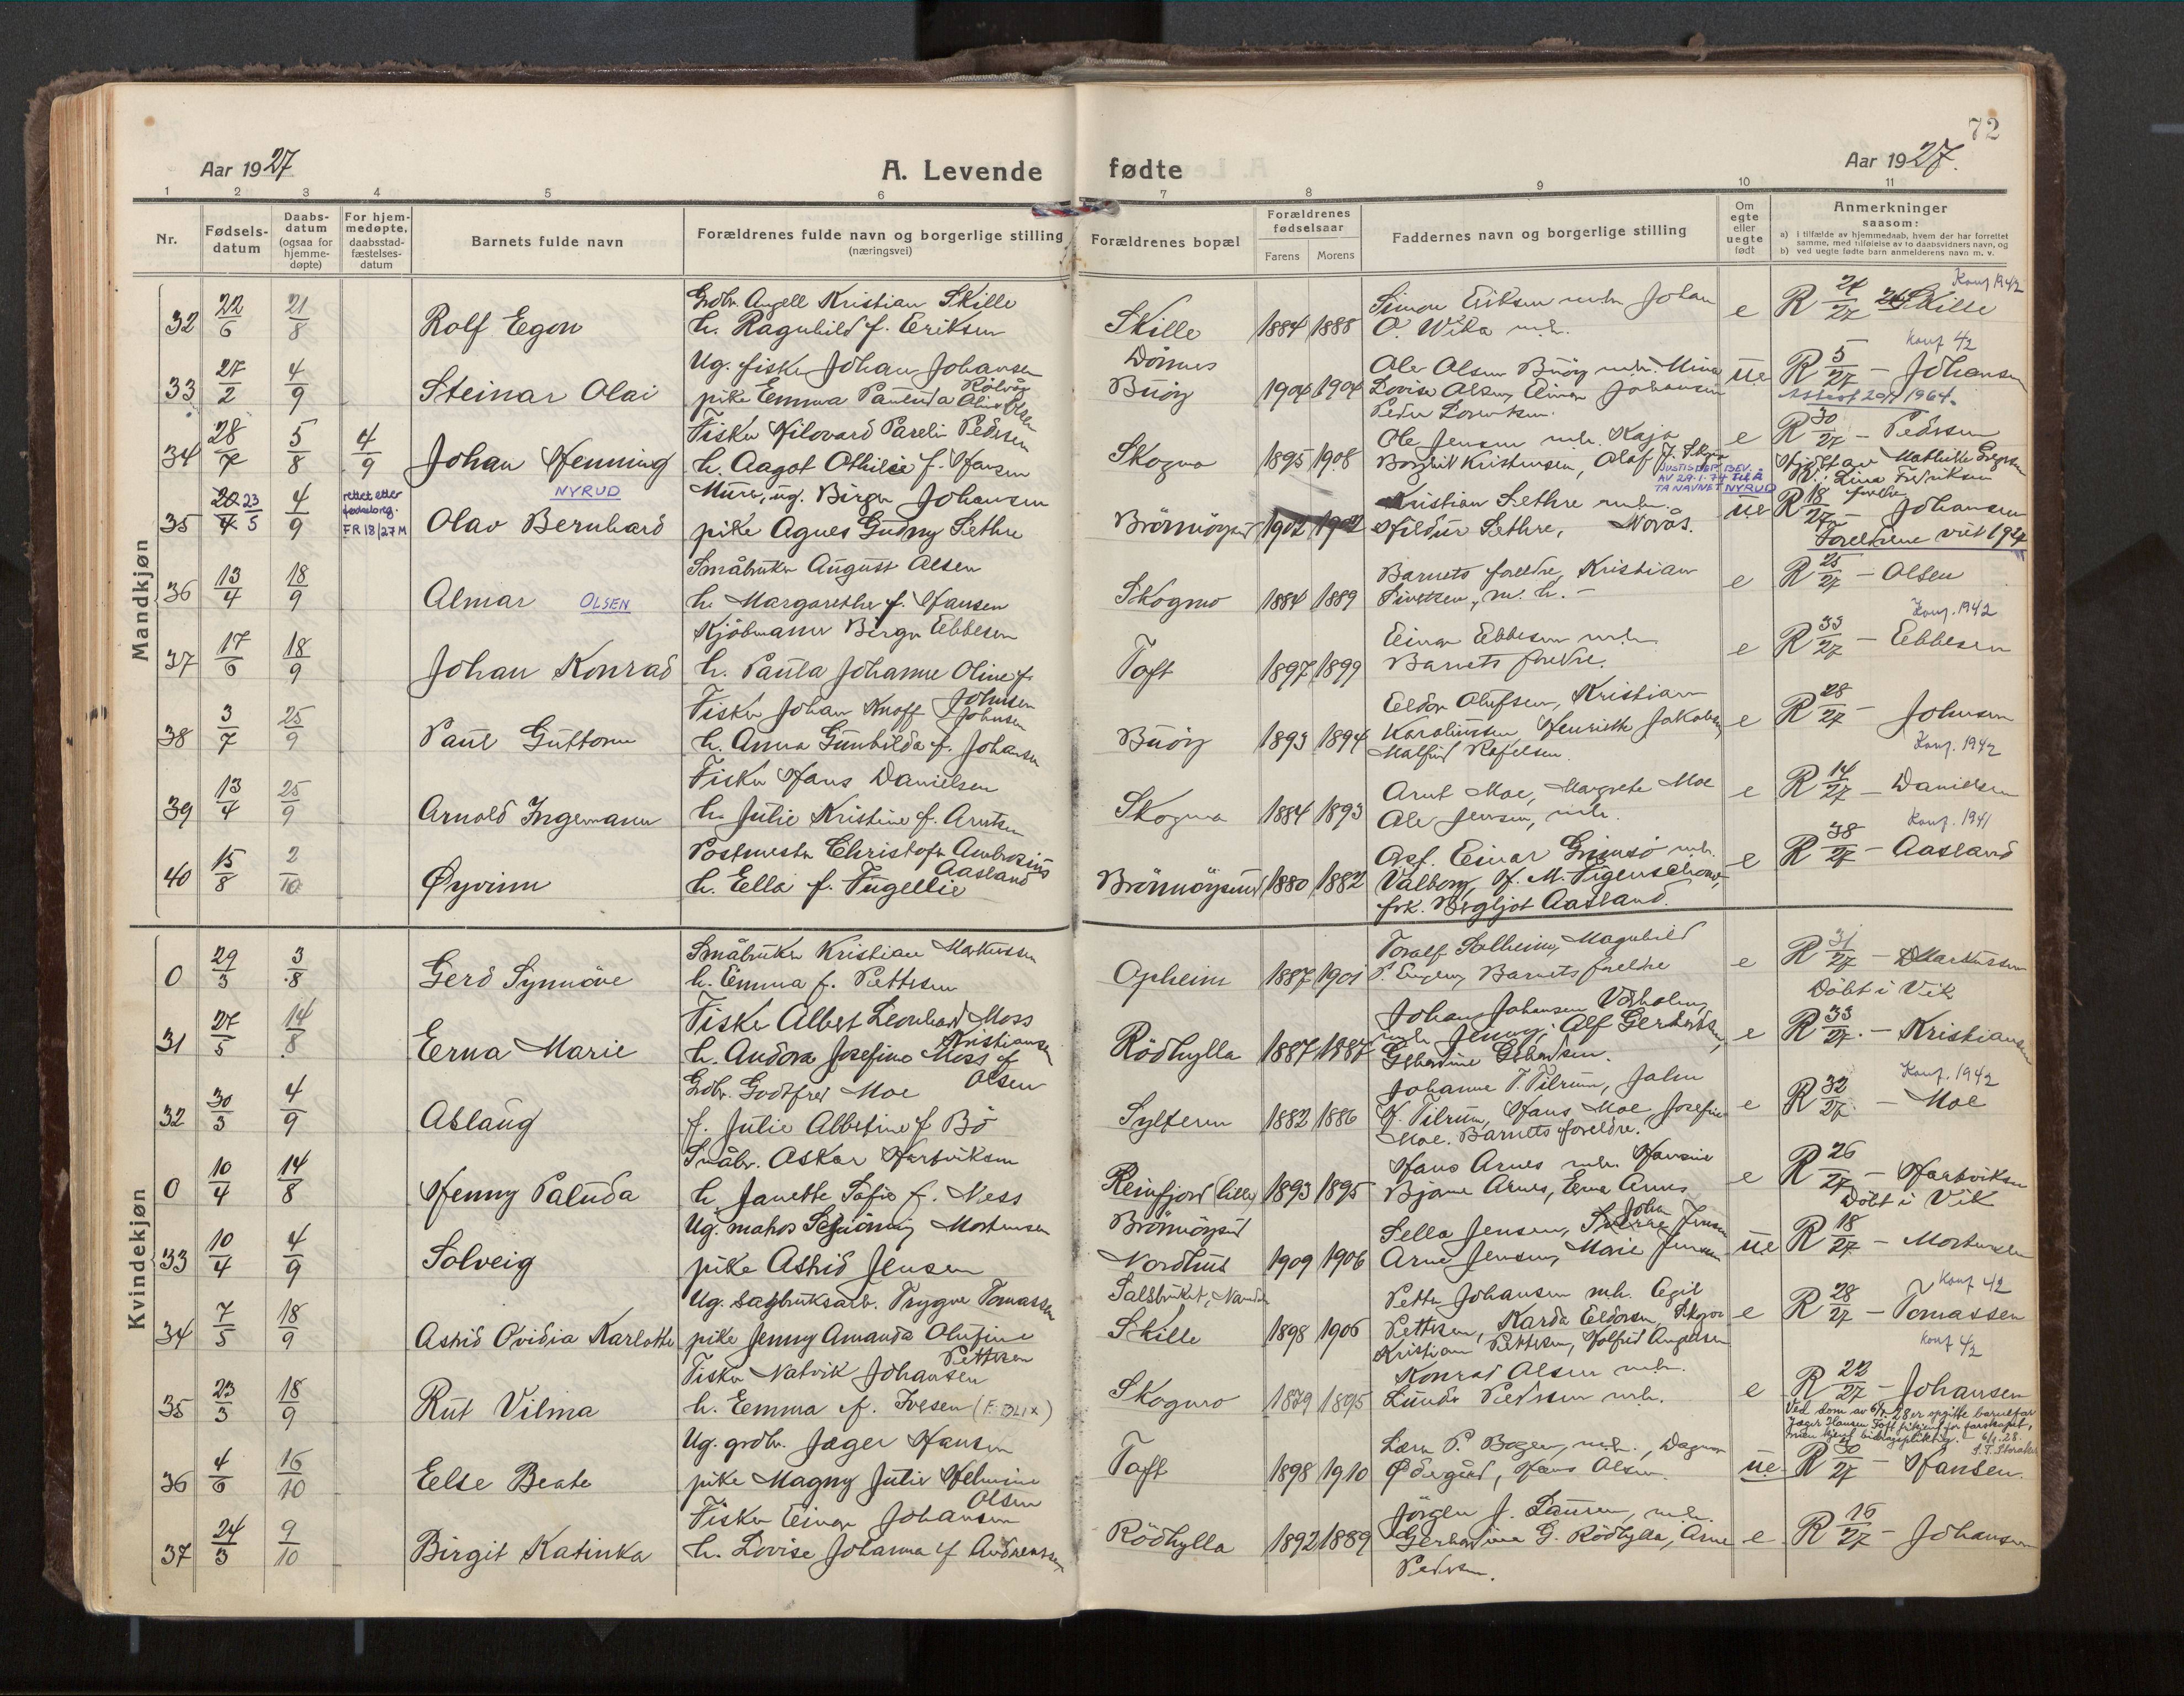 72
Aar 1927
A. Levende fødte
Aar 1927.
1 2 3 4 5 6 7 8 9 10 11
Nr.
Fødsels-
datum
Daabs-
datum
(ogsaa for
hjemme-
døpte)
For hjem-
medøpte,
daabsstad-
fæstelses-
datum
Barnets fulde navn
Forældrenes fulde navn og borgerlige stilling
(næringsvei)
Forældrenes bopæl
Forældrenes
fødselsaar
Farens Morens
Faddernes navn og borgerlige stilling
Om
egte
eller
uegte
født
Anmerkninger
saasom:
a) i tilfælde av hjemmedaab, hvem der har forrettet
samme, med tilføielse av to daabsvidners navn, og
b) ved uegte fødte barn anmelderens navn m. v.
Mandkjøn
32 22/6 21/8 Rolf Egon
Grdbr. Angell Kristian Skille
h. Ragnhild f. Eriksen
Skille 1884 1888
Simon Eriksen mh. Johan
O. Wika mh.
e R 24/27 Skille
Konf 1942
33 27/2 4/9 Steinar Olai
Ug. fisker Johan Johansen
pike Emma Paulida Olsen
Dönnes
Buöy 1904 1904
Ole Olsen Buöy mh. Mina
Lovise Olsen, Einar Johansen
Peder Lorentsen.
ue R 5/27 - Johansen
Konf 42
34 28/7 5/8 4/9 Johan Henning
Fisker Hilovard Parelin Pedersen
h. Aagot Othilie f. Hansen
Skogmo 1895 1908
Ole Jensen mh. Kaja
Borghil Kristensen, Olaf J. Skogmo
e R 30/27 - Pedersen
35 20/4 23/5 4/9
rettet etter
fødselsreg.
FR 18/27 M
Olav Bernhard NYRUD
Murer, ug. Birger Johansen
pike Agnes Gudny Sethre
Brönnöysund 1902 1902
Kristian Sethre mh.
Hildur Sethre, Novås.
JUSTISDEP. BEV.
AV 29.1.74 TIL Å
TA NAVNET NYRUD
ue R 18/27 - Johansen
Foreldrene viet 1927
36 13/4 18/9 Almar OLSEN
Småbruker August Olsen
h. Margarethe f. Hansen
Skogmo 1884 1889
Barnets foreldre, Kristian
Sivertsen, m. h. -
e R 25/27 - Olsen
37 17/6 18/9 Johan Konrad
Kjöbmann Birger Ebbesen
h. Paula Johanne Oline f.
Johnsen
Toft 1897 1899
Einar Ebbesen mh.
Barnets foreldre.
e R 33/27 - Ebbesen
Konf. 1942
38 3/7 25/9 Paul Guttorm
Fisker Johan Knoff Johnsen
h. Anna Gunhilda f. Johansen
Buöy 1893 1894
Eldor Olufsen, Kristian
Karoliussen, Henrikke Jakobsen
Malfrid Rafelsen.
e R 28/27 - Johnsen
39 13/4 25/9 Arnold Ingemann
Fisker Hans Danielsen
h. Julie Kristine f. Arntsen
Skogmo 1884 1893
Arnt Moe, Margrete Moe
Ole Jensen, mh.
e R 14/27 - Danielsen
Konf. 1942
40 15/8 2/10 Øyvinn
Postmester Christofer Ambrosius
Aasland
h. Ella f. Fugellie
Brönnöysund 1880 1882
Opf. Einar Grimsö mh.
Valborg, H. M. Figenschow,
frk. Bergljot Aasland.
e R 38/27 - Aasland
Konf. 1941
Kvindekjøn
0 29/3 3/8 Gerd Synnöve
Småbruker Kristian Markussen
h. Emma f. Pettersen
Opheim 1887 1901
Toralf Solheim, Magnhild
P. Engen, Barnets foreldre
e R 31/27 - Markussen
Döbt i Vik
31 27/5 14/8 Erna Marie
Fisker Albert Leonhard Moss
Kristiansen
h. Andora Josefine Moss f.
Olsen
Rödhylla 1887 1887
Johan Johansen Vikholmen,
mh. Jenny, Alf Gerhardsen,
Gerhardine Gerhardsen.
e R 33/27 - Kristiansen
32 30/3 4/9 Aslaug
Grdbr. Godtfred Moe
f. Julie Albertine f. Bö
Sylteren 1882 1886
Johanne T. Tilrum, John
H. Tilrum, Hans Moe, Josefine
Moe. Barnets foreldre.
e R 32/27 - Moe
Konf. 1942
0 10/4 14/8 Henny Paluda
Småbr. Oskar Hartviksen
h. Janette Sofie f. Ness
Reinfjord (lille) 1893 1895
Hans Arnes mh. Hansine
Bjarne Arnes, Erna Arnes
e R 26/27 - Hartviksen
Döbt i Vik
33 10/4 4/9 Solveig
Ug. matros Schjönning Mortensen
pike Astrid Jensen
Brönnöysund
Nordhus 1909 1906
Sella Jensen, Johan Jensen
Arne Jensen, Marie Jensen
ue R 18/27 - Mortensen
34 7/5 18/9 Astrid Ovidia Karlotte
Ug. sagbruksarb. Trygve Tomassen
pike Jenny Amanda Olufine
Pettersen
Salsbruket, Namdalen
Skille 1898 1906
Petter Johansen mh. Egil
Pettersen, Karda Eldorsen, Skogmo
Kristian Pettersen, Holfrid Angelsen
e R 28/27 - Tomassen
Konf 42
35 23/3 18/9 Rut Vilma
Fisker Natvik Johansen
h. Emma f. Ivesen (F. BLIX)
Skogmo 1879 1895
Konrad Olsen mh.
Lunde Pedersen mh.
e R 22/27 - Johansen
konf 42
36 4/6 16/10 Else Beate
Ug. grdbr. Jæger Hansen
pike Magny Julie Helmine
Olsen
Toft 1898 1910
Lærer P. Bogen, mh., Dagmar
Ödegård, Hans Olsen.
ue R 30/27 - Hansen.
Ved dom av 6/7.28 er opgitte barnefar
Jæger Hansen Toft frikjent for farskapet,
men kjent bidragspliktig. - 6/11.28.
37 24/3 9/10 Birgit Katinka
Fisker Einar Johansen
h. Lovise Johanna f. Andreassen
Rödhylla 1892 1889
Jörgen J. Laursen, mh.
Gerhardine G. Rödhylla, Arne
Pedersen.
e R 15/27 - Johansen